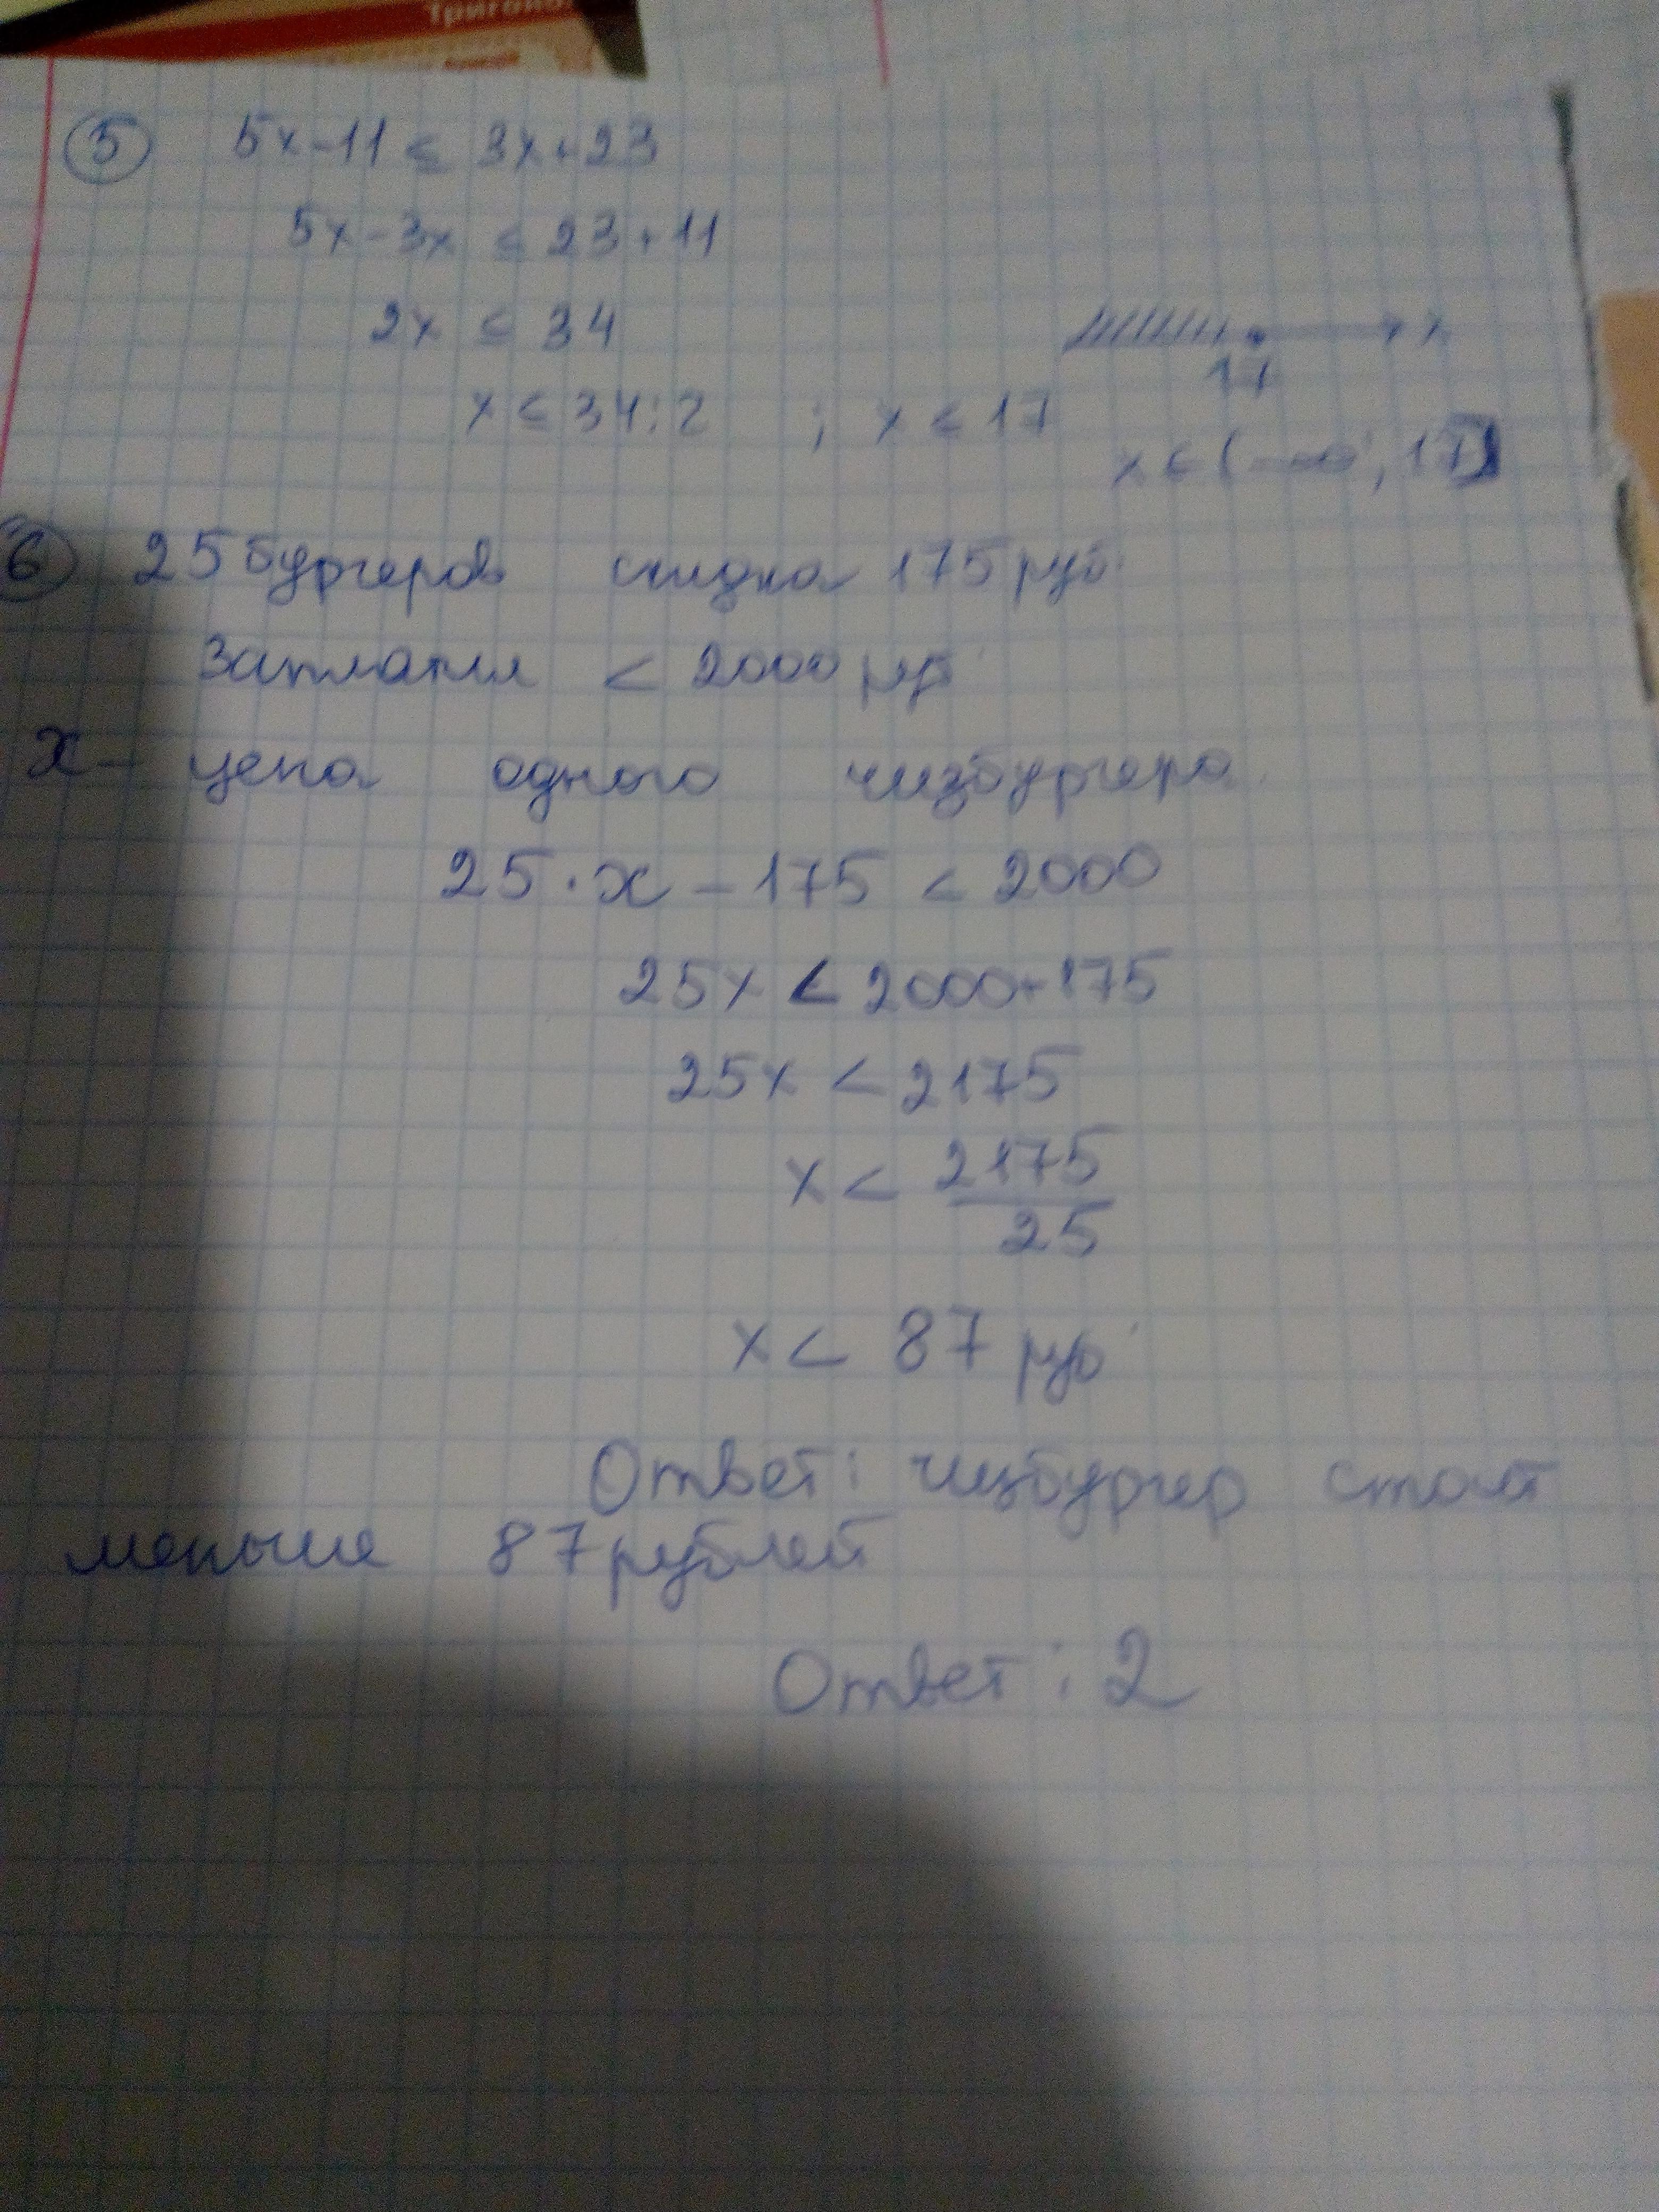 Тригоно
5 5x-11 ≤ 3x+23
5x-3x ≤ 23+11
2x ≤ 34
17
x ≤ 34:2 ; x ≤ 17
x ∈ (-∞; 17]
6 25 бургеров скидка 175 руб.
Заплатил < 2000 руб
x - цена одного чизбургера
25·x - 175 < 2000
25x < 2000+175
25x < 2175
x < 2175/25
x < 87 руб
Ответ: чизбургер стоит
меньше 87 рублей
Ответ: 2